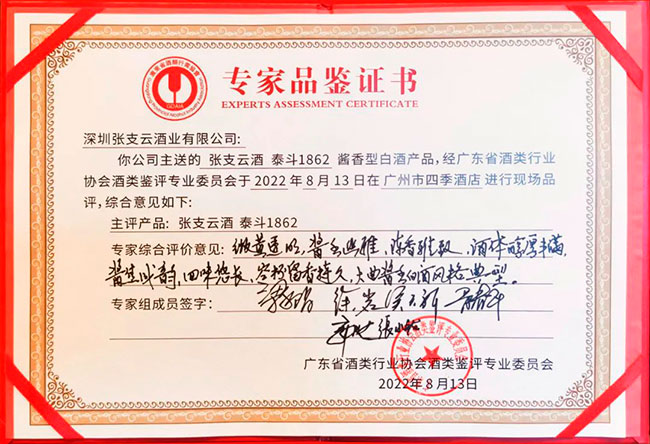 专家品鉴证书
EXPERTS ASSESSMENT CERTIFICATE
GDAIA
深圳张支云酒业有限公司:
你公司主送的 张支云酒 泰斗1862 酱香型白酒产品, 经广东省酒类行业
协会酒类鉴评专业委员会于2022年8月13日在 广州市四季酒店 进行现场品
评, 综合意见如下:
主评产品: 张支云酒 泰斗1862
专家综合评价意见: 微黄透明, 酱香幽雅, 陈香细腻, 酒体醇厚丰满,
酱生成韵, 回味悠长, 空杯留香持久, 大曲酱香白酒风格典型。
专家组成员签字: 徐岩
张小
广东省酒类行业协会酒类鉴评专业委员会
2022年8月13日